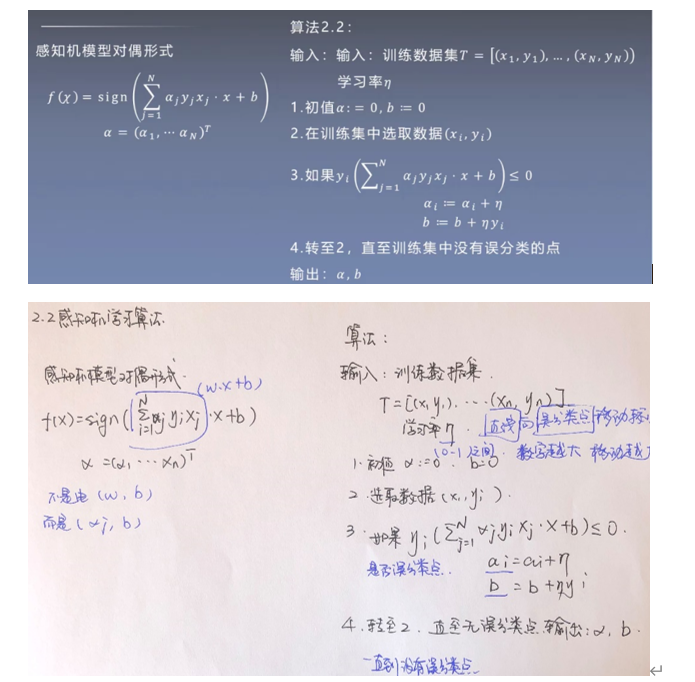 感知机模型对偶形式
f(χ) = sign(∑_{j=1}^{N} α_j y_j x_j · x + b)
α = (α_1, ⋯ α_N)^T
算法2.2：
输入：输入：训练数据集T = [(x_1, y_1), …, (x_N, y_N))
学习率η
1.初值α: = 0, b := 0
2.在训练集中选取数据(x_i, y_i)
3.如果y_i(∑_{j=1}^{N} α_j y_j x_j · x + b) ≤ 0
α_i := α_i + η
b := b + ηy_i
4.转至2，直至训练集中没有误分类的点
输出：α, b
2.2感知机学习算法.
感知机模型对偶形式.
(w·x+b)
f(x)=sign(∑_{i=1}^{N} α_j y_i x_j · x+b)
α=(α_1, ⋯ α_n)^T
不是由 (w, b)
而是 (α_j, b)
算法：
输入：训练数据集.
T=[(x_1, y_1). ⋯ (x_n, y_n)]
学习率 η. 直线向误分类点移动
(0-1之间) 数字越大 移动越
1. 初值 α:=0. b:=0
2. 选取数据(x_i, y_i).
3. 如果 y_i(∑_{j=1}^{N} α_j y_i x_j · x+b)≤0.
是否误分类点. a_i:=a_i+η
b:=b+ηy_i
4. 转至2. 直至无误分类点. 输出:α, b.
一直到没有误分类点